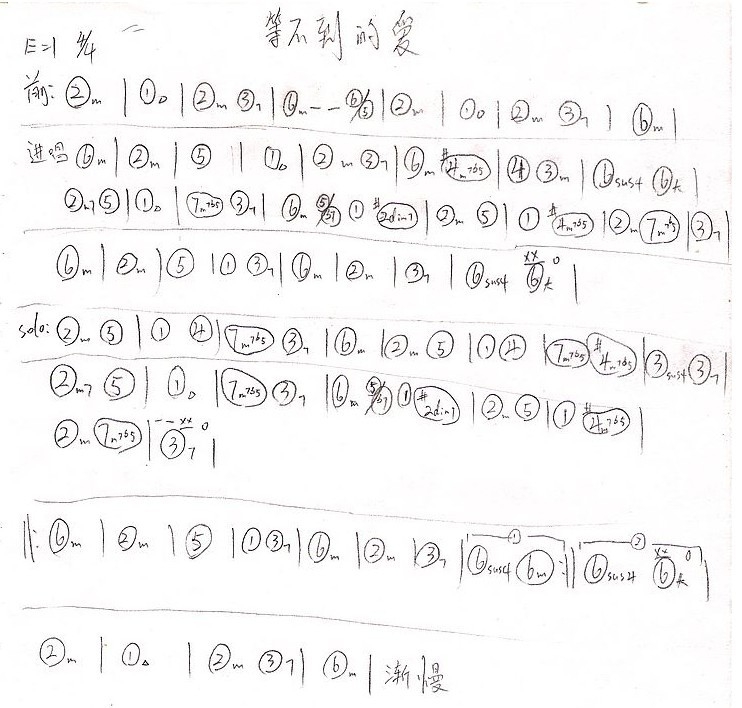 等不到的爱
E=1 4/4
前: ②m | ①。 | ②m ③7 | ⑥m - - ⑥/⑤ | ②m | ①。 | ②m ③7 | ⑥m |
进唱 ⑥m | ②m | ⑤ | ①。 | ②m ③7 | ⑥m #④m7b5 | ④ ③m | ⑥sus4 ⑥大 |
②m7 ⑤ | ①。 | ⑦m7b5 ③7 | ⑥m ① #②dim7 | ②m ⑤ | ① #④m7b5 | ②m ⑦m7b5 | ③7 |
⑥m | ②m | ⑤ | ① ③7 | ⑥m | ②m | ③7 | ⑥sus4 xx ⑥大 0 |
solo: ②m ⑤ | ① ④ | ⑦m7b5 ③7 | ⑥m | ②m ⑤ | ① ④ | ⑦m7b5 #④m7b5 | ③sus4 ③7 |
②m7 ⑤ | ①。 | ⑦m7b5 ③7 | ⑥m ① #②dim7 | ②m ⑤ | ① #④m7b5 |
②m ⑦m7b5 | - - xx ③7 0 |
||: ⑥m | ②m | ⑤ | ① ③7 | ⑥m | ②m | ③7 | ① ⑥sus4 ⑥m :|| ② ⑥sus4 xx ⑥大 0 |
②m | ①△ | ②m ③7 | ⑥m | 渐慢